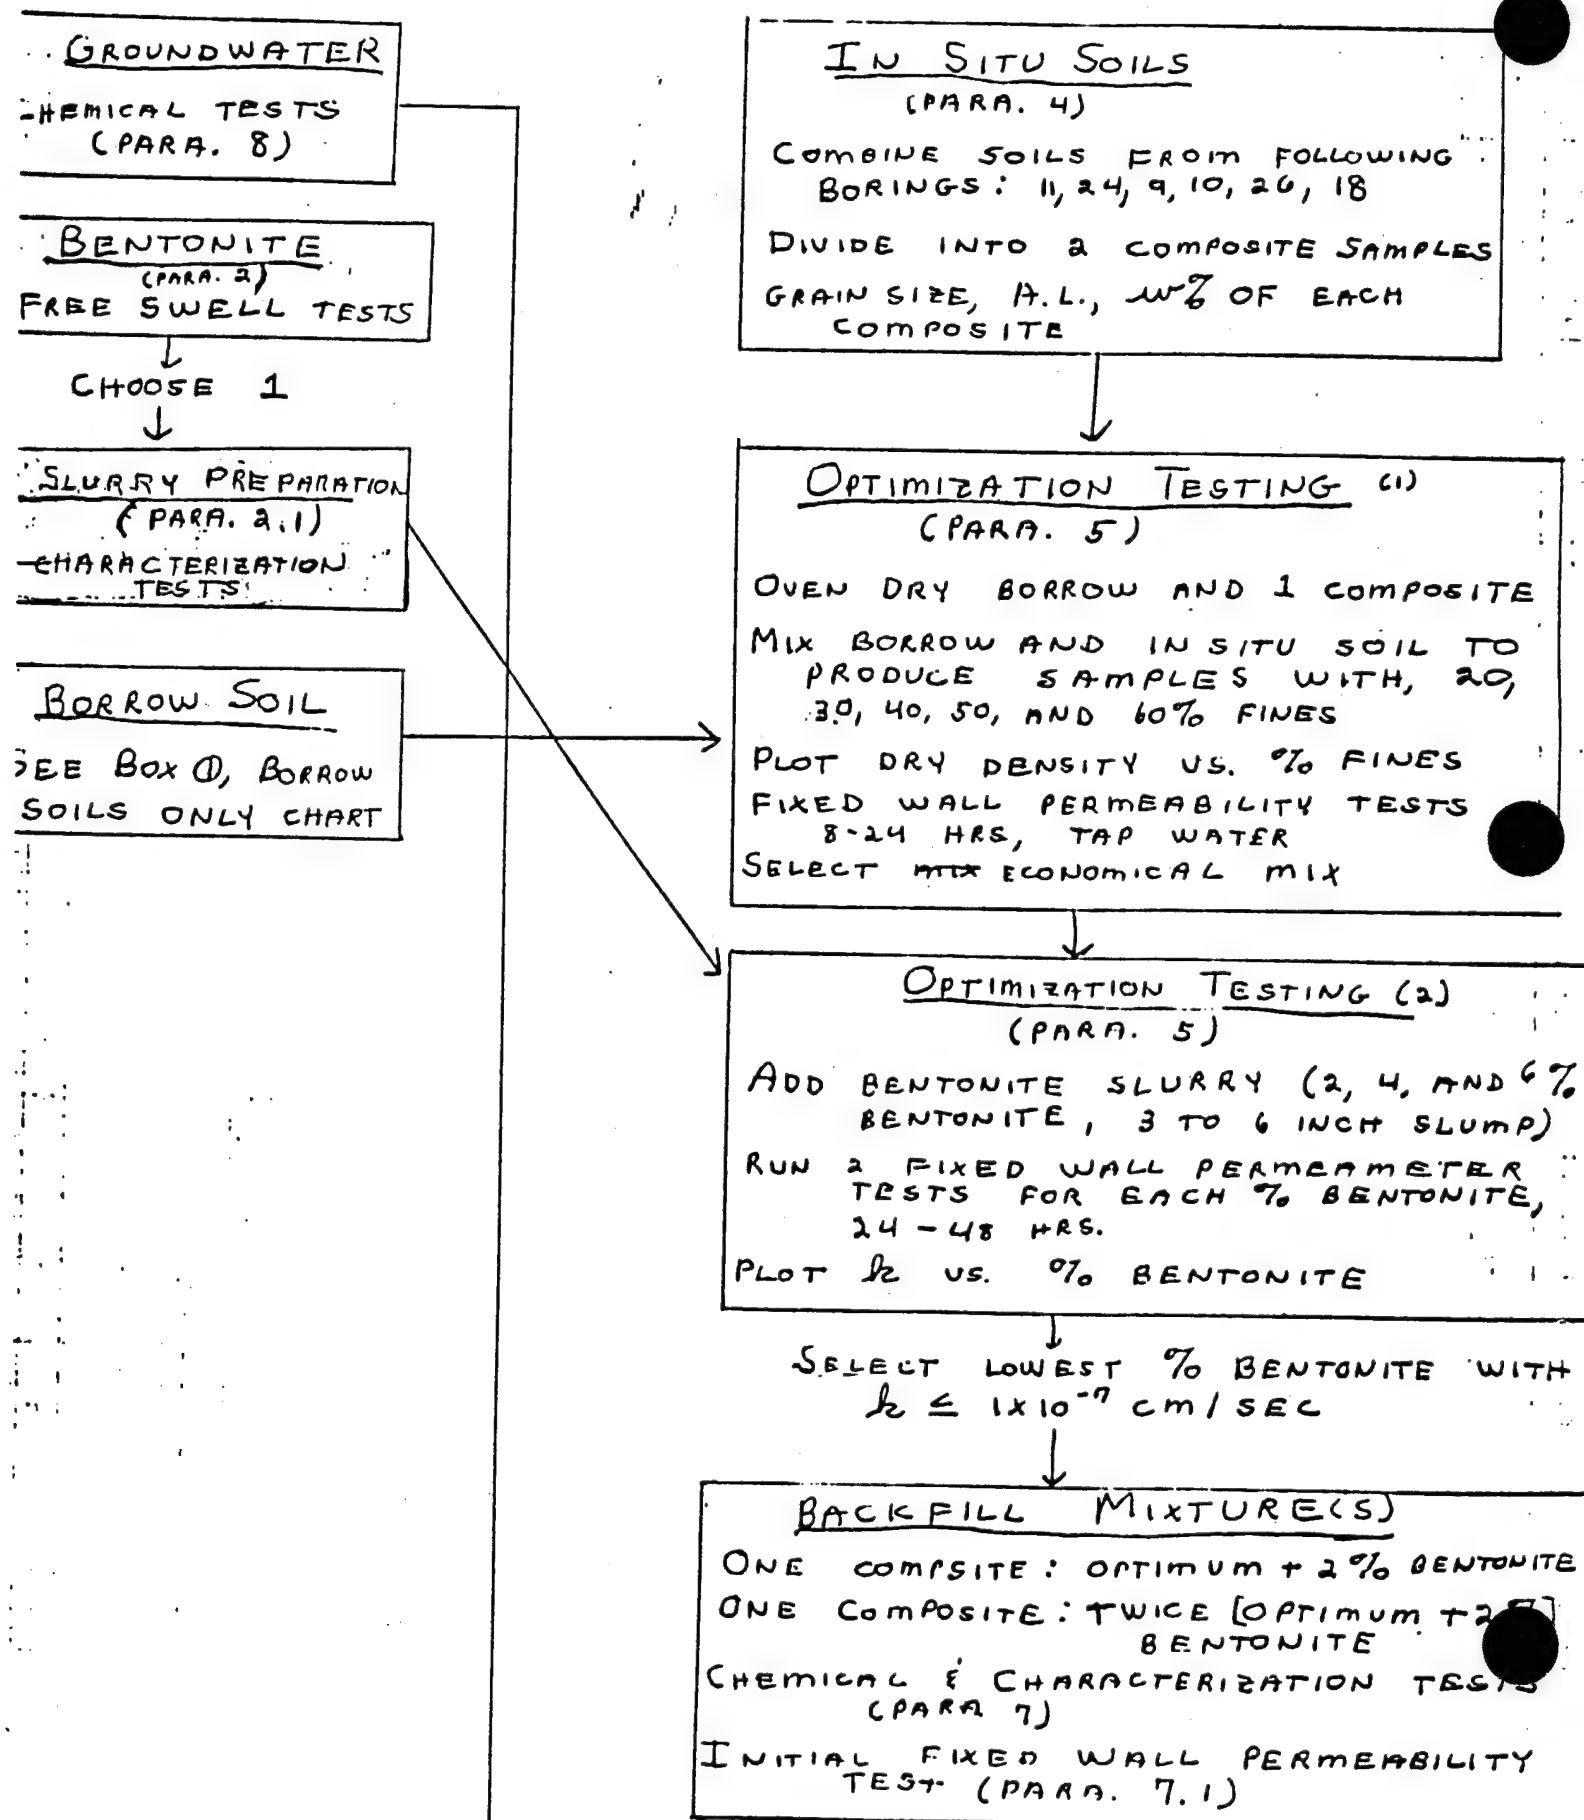 GROUNDWATER
HEMICAL TESTS
(PARA. 8)
BENTONITE
(PARA. 2)
FREE SWELL TESTS
CHOOSE 1
SLURRY PREPARATION
(PARA. 2.1)
CHARACTERIZATION
TESTS
BORROW SOIL
SEE BOX ①, BORROW
SOILS ONLY CHART
IN SITU SOILS
(PARA. 4)
COMBINE SOILS FROM FOLLOWING
BORINGS: 11, 24, 9, 10, 26, 18
DIVIDE INTO 2 COMPOSITE SAMPLES
GRAIN SIZE, A.L., w% OF EACH
COMPOSITE
OPTIMIZATION TESTING (1)
(PARA. 5)
OVEN DRY BORROW AND 1 COMPOSITE
MIX BORROW AND IN SITU SOIL TO
PRODUCE SAMPLES WITH, 20,
30, 40, 50, AND 60% FINES
PLOT DRY DENSITY VS. % FINES
FIXED WALL PERMEABILITY TESTS
8-24 HRS, TAP WATER
SELECT ECONOMICAL MIX
OPTIMIZATION TESTING (2)
(PARA. 5)
ADD BENTONITE SLURRY (2, 4, AND 6%
BENTONITE, 3 TO 6 INCH SLUMP)
RUN 2 FIXED WALL PERMEAMETER
TESTS FOR EACH % BENTONITE,
24-48 HRS.
PLOT k VS. % BENTONITE
SELECT LOWEST % BENTONITE WITH
k ≤ 1X10⁻⁷ cm/SEC
BACKFILL MIXTURE(S)
ONE COMPSITE: OPTIMUM + 2% BENTONITE
ONE COMPOSITE: TWICE [OPTIMUM +2
BENTONITE
CHEMICAL & CHARACTERIZATION TESTS
(PARA 7)
INITIAL FIXED WALL PERMEABILITY
TEST (PARA. 7.1)